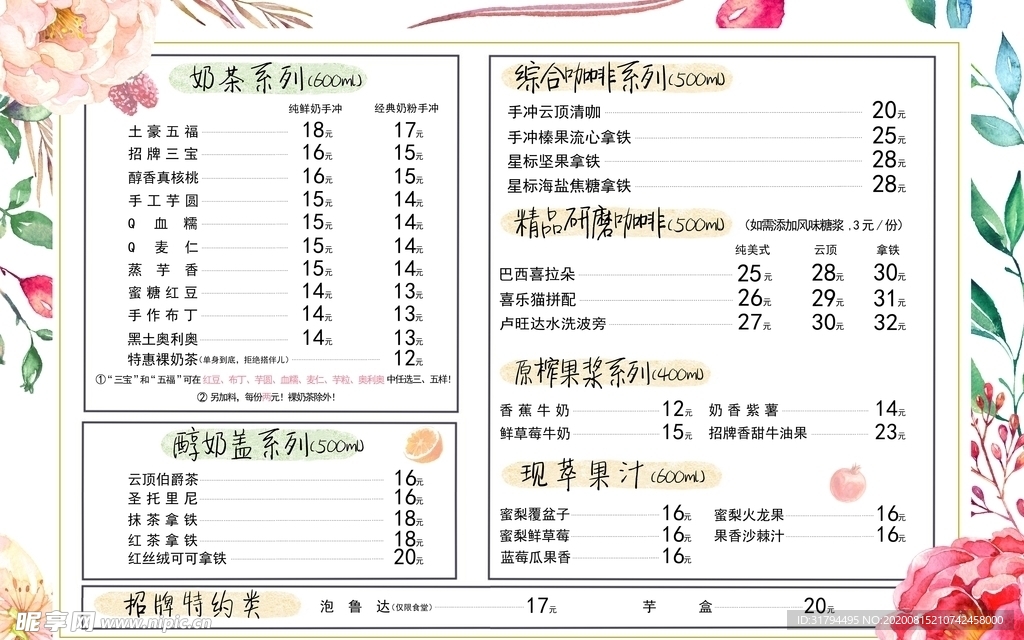 奶茶系列(600ml)
纯鲜奶手冲 经典奶粉手冲
土豪五福 18元 17元
招牌三宝 16元 15元
醇香真核桃 16元 15元
手工芋圆 15元 14元
Q血糯 15元 14元
Q麦仁 15元 14元
蒸芋香 15元 14元
蜜糖红豆 14元 13元
手作布丁 14元 13元
黑土奥利奥 14元 13元
特惠裸奶茶(单身到底，拒绝搭伴儿) 12元
①“三宝”和“五福”可在 红豆、布丁、芋圆、血糯、麦仁、芋粒、奥利奥 中任选三、五样！
② 另加料，每份两元！裸奶茶除外！
醇奶盖系列(500ml)
云顶伯爵茶 16元
圣托里尼 16元
抹茶拿铁 18元
红茶拿铁 18元
红丝绒可可拿铁 20元
综合咖啡系列(500ml)
手冲云顶清咖 20元
手冲榛果流心拿铁 25元
星标坚果拿铁 28元
星标海盐焦糖拿铁 28元
精品研磨咖啡(500ml) （如需添加风味糖浆 .3元/份）
纯美式 云顶 拿铁
巴西喜拉朵 25元 28元 30元
喜乐猫拼配 26元 29元 31元
卢旺达水洗波旁 27元 30元 32元
原榨果浆系列(400ml)
香蕉牛奶 12元 奶香紫薯 14元
鲜草莓牛奶 15元 招牌香甜牛油果 23元
现萃果汁(600ml)
蜜梨覆盆子 16元 蜜梨火龙果 16元
蜜梨鲜草莓 16元 果香沙棘汁 16元
蓝莓瓜果香 16元
招牌特约类 泡鲁达(仅限食堂) 17元 芋盒 20元
昵享网 www.nipic.cn
ID:31794495 NO:20200815210742458000